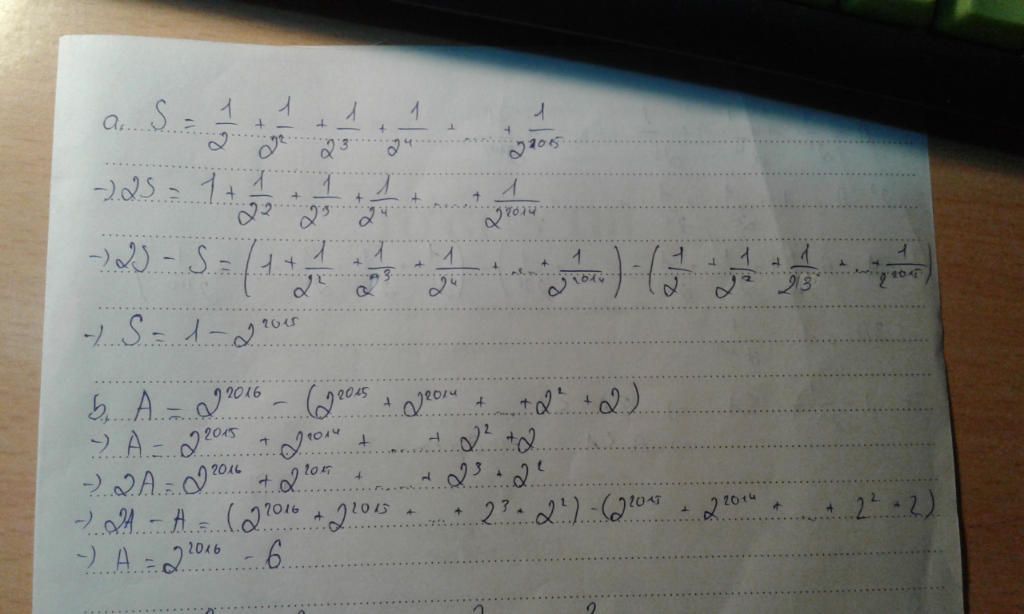 a, S = 1/2 + 1/2² + 1/2³ + 1/2⁴ + ... + 1/2²⁰¹⁵
→ 2S = 1 + 1/2² + 1/2³ + 1/2⁴ + ... + 1/2²⁰¹⁴
→ 2S - S = (1 + 1/2² + 1/2³ + 1/2⁴ + ... + 1/2²⁰¹⁴) - (1/2 + 1/2² + 1/2³ + ... + 1/2²⁰¹⁵)
→ S = 1 - 2²⁰¹⁵
b, A = 2²⁰¹⁶ - (2²⁰¹⁵ + 2²⁰¹⁴ + ... + 2² + 2)
→ A = 2²⁰¹⁵ + 2²⁰¹⁴ + ... + 2² + 2
→ 2A = 2²⁰¹⁶ + 2²⁰¹⁵ + ... + 2³ + 2²
→ 2A - A = (2²⁰¹⁶ + 2²⁰¹⁵ + ... + 2³ + 2²) - (2²⁰¹⁵ + 2²⁰¹⁴ + ... + 2² + 2)
→ A = 2²⁰¹⁶ - 6